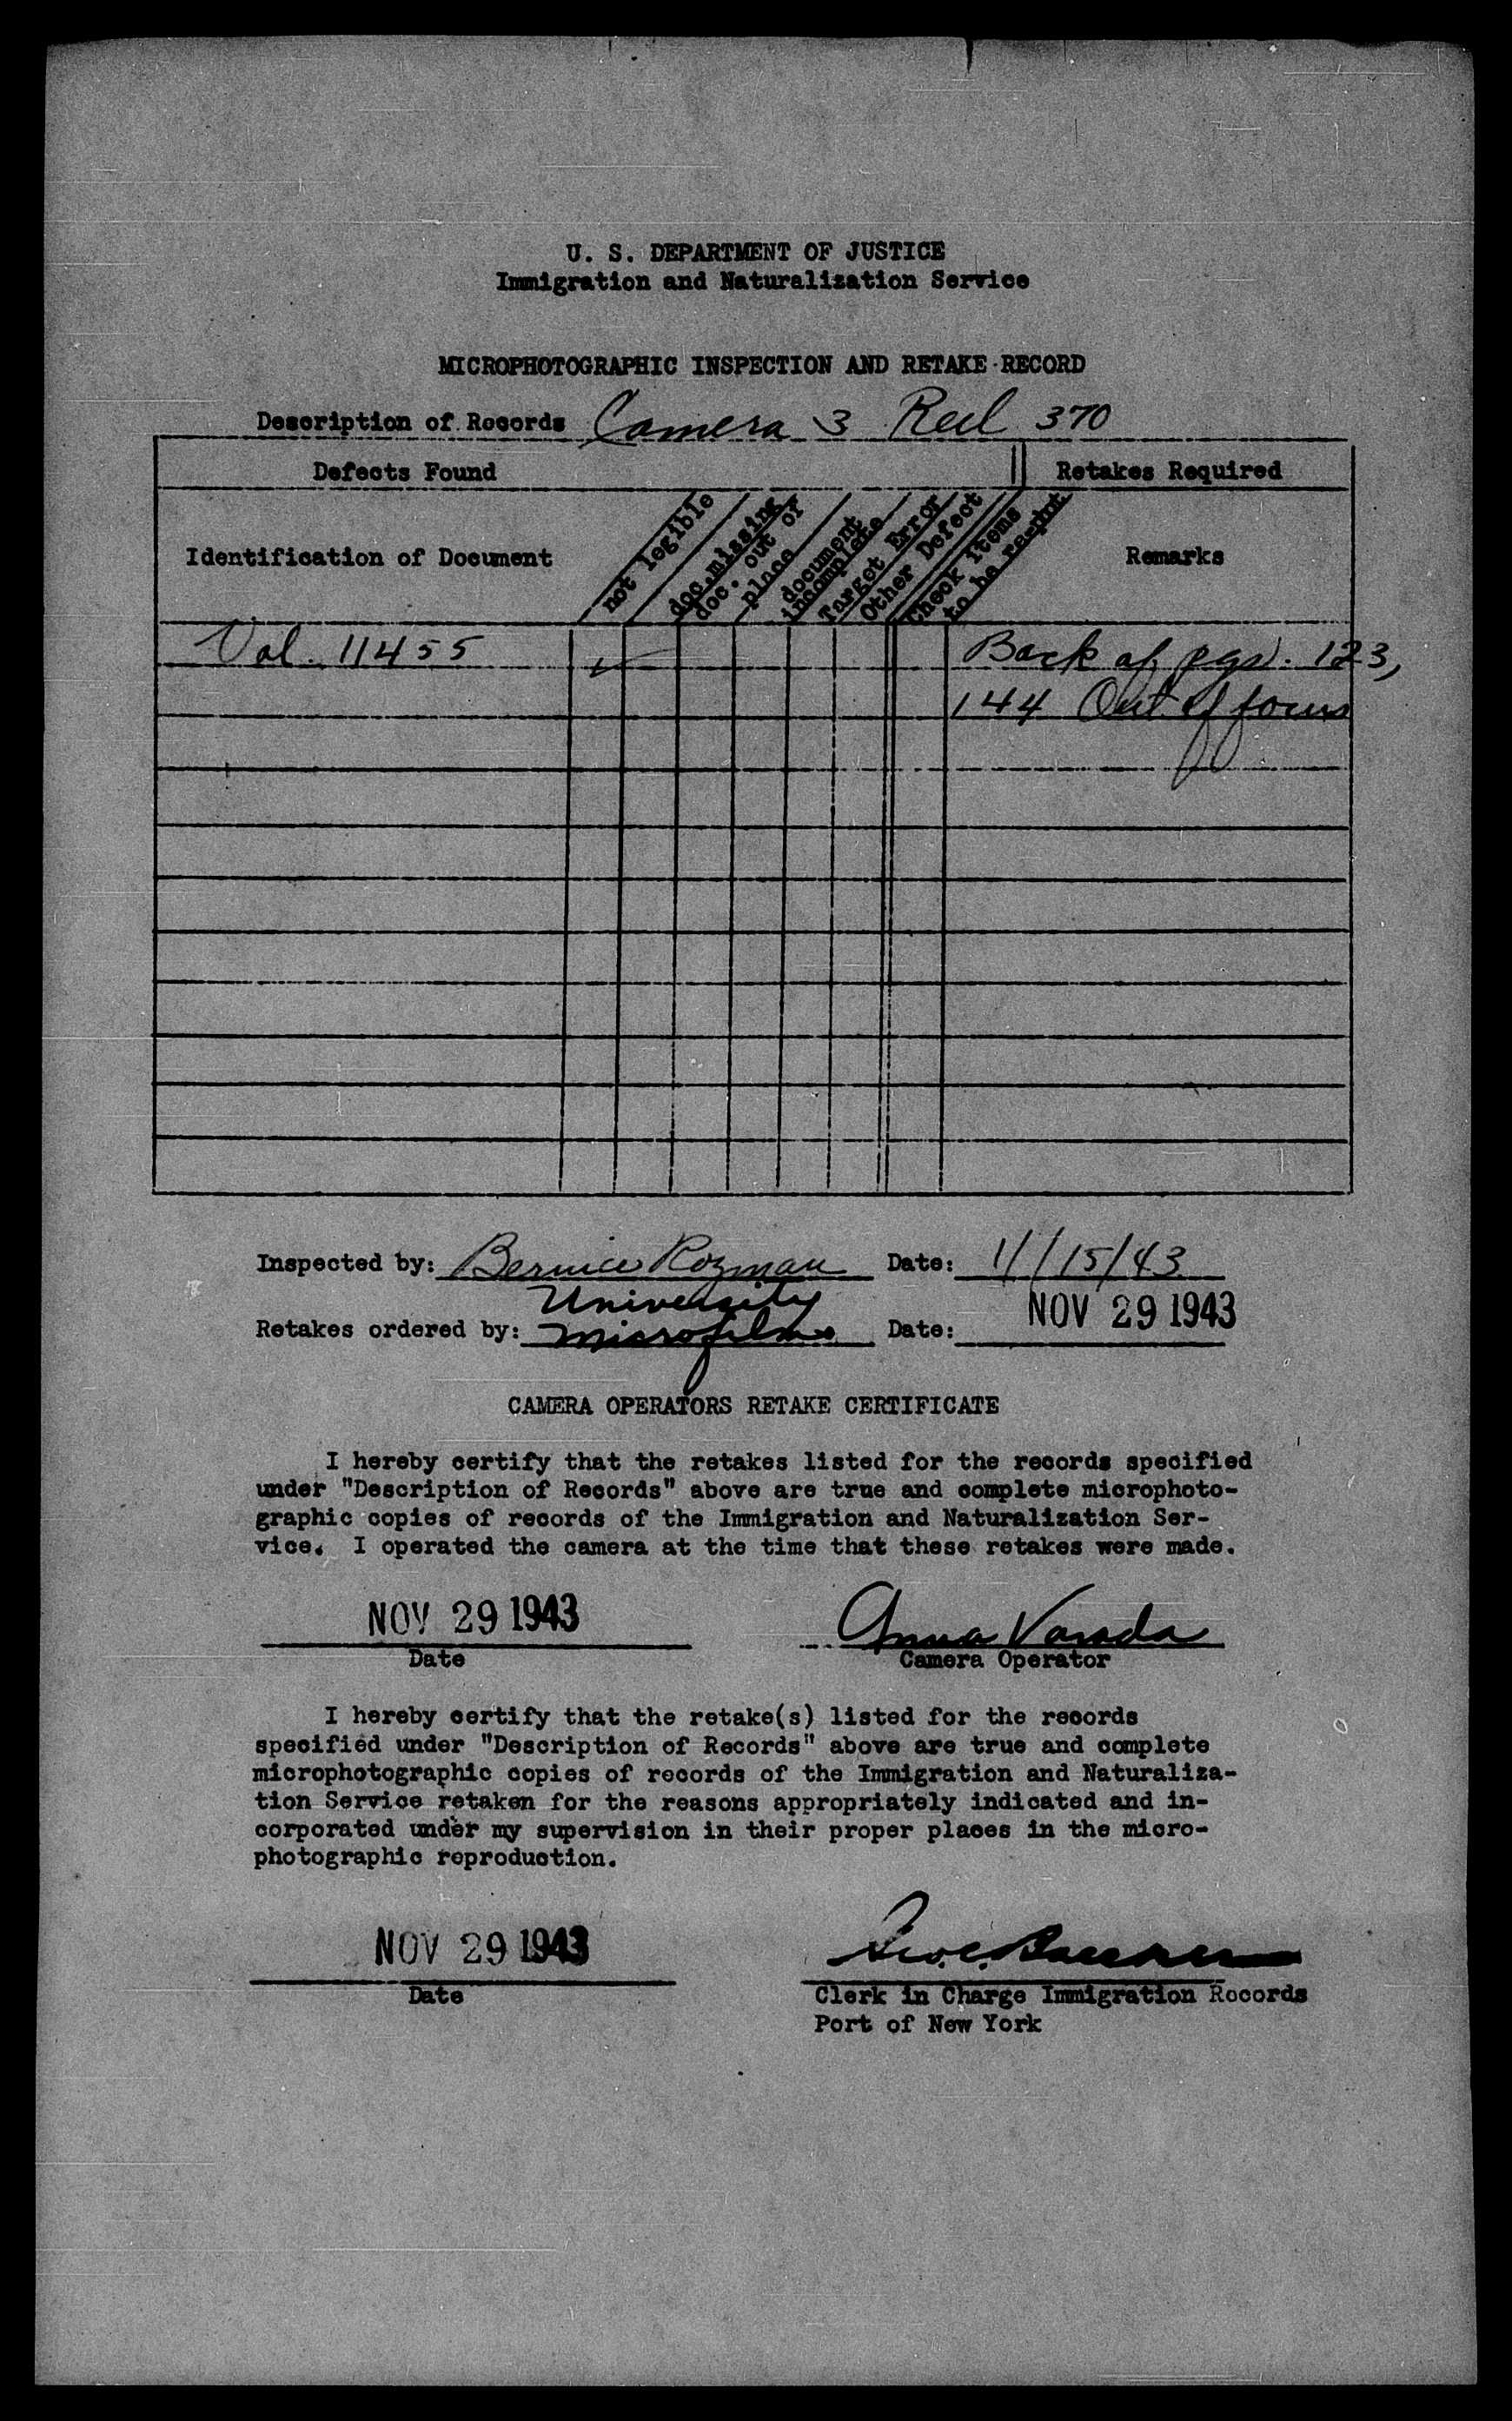 U. S. DEPARTMENT OF JUSTICE
Immigration and Naturalization Service
MICROPHOTOGRAPHIC INSPECTION AND RETAKE RECORD
Description of Records Camera 3 Reel 370
Defects Found Retakes Required
Identification of Document
not legible
doc. missing
doc. out of place
document incomplete
Target Error
Other Defect
Check items to be re-phot
Remarks
Vol. 11455 ✓ Back of pgs. 123,
144 Out of focus
Inspected by: Bernice Rozman Date: 11/15/43
University
Retakes ordered by: Microfilms Date: NOV 29 1943
CAMERA OPERATORS RETAKE CERTIFICATE
I hereby certify that the retakes listed for the records specified
under "Description of Records" above are true and complete microphoto-
graphic copies of records of the Immigration and Naturalization Ser-
vice. I operated the camera at the time that these retakes were made.
NOV 29 1943 Anna Varada
Date Camera Operator
I hereby certify that the retake(s) listed for the records
specified under "Description of Records" above are true and complete
microphotographic copies of records of the Immigration and Naturaliza-
tion Service retaken for the reasons appropriately indicated and in-
corporated under my supervision in their proper places in the micro-
photographic reproduction.
NOV 29 1943
Date Clerk in Charge Immigration Records
Port of New York